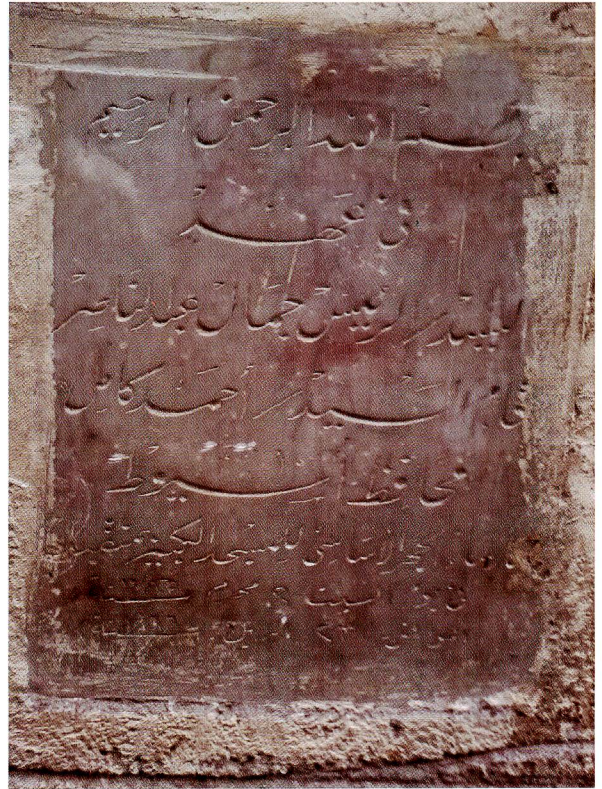 بسم الله الرحمن الرحيم
في عهد
السيد / الرئيس جمال عبد الناصر
قام السيد / أحمد كامل
محافظ أسيوط
الحجر الأساسي للمسجد الكبير بمنقباد
في يوم السبت محرم سنة
الموافق سنة